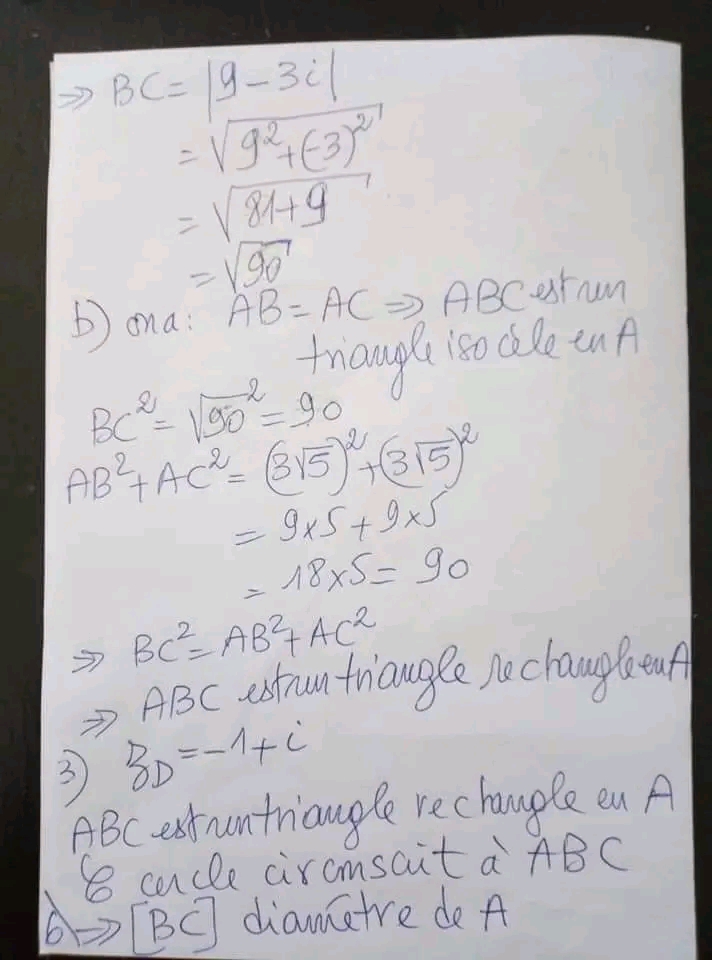 ⇒ BC = |9 - 3i|
= √(9² + (-3)²)
= √(81 + 9)
= √90
b) on a : AB = AC ⇒ ABC est un
triangle isocèle en A
BC² = √90² = 90
AB² + AC² = (3√5)² + (3√5)²
= 9 × 5 + 9 × 5
= 18 × 5 = 90
⇒ BC² = AB² + AC²
⇒ ABC est un triangle rectangle en A
3) z_D = -1 + i
ABC est un triangle rectangle en A
𝒞 cercle circonscait à ABC
⇒ [BC] diamètre de A